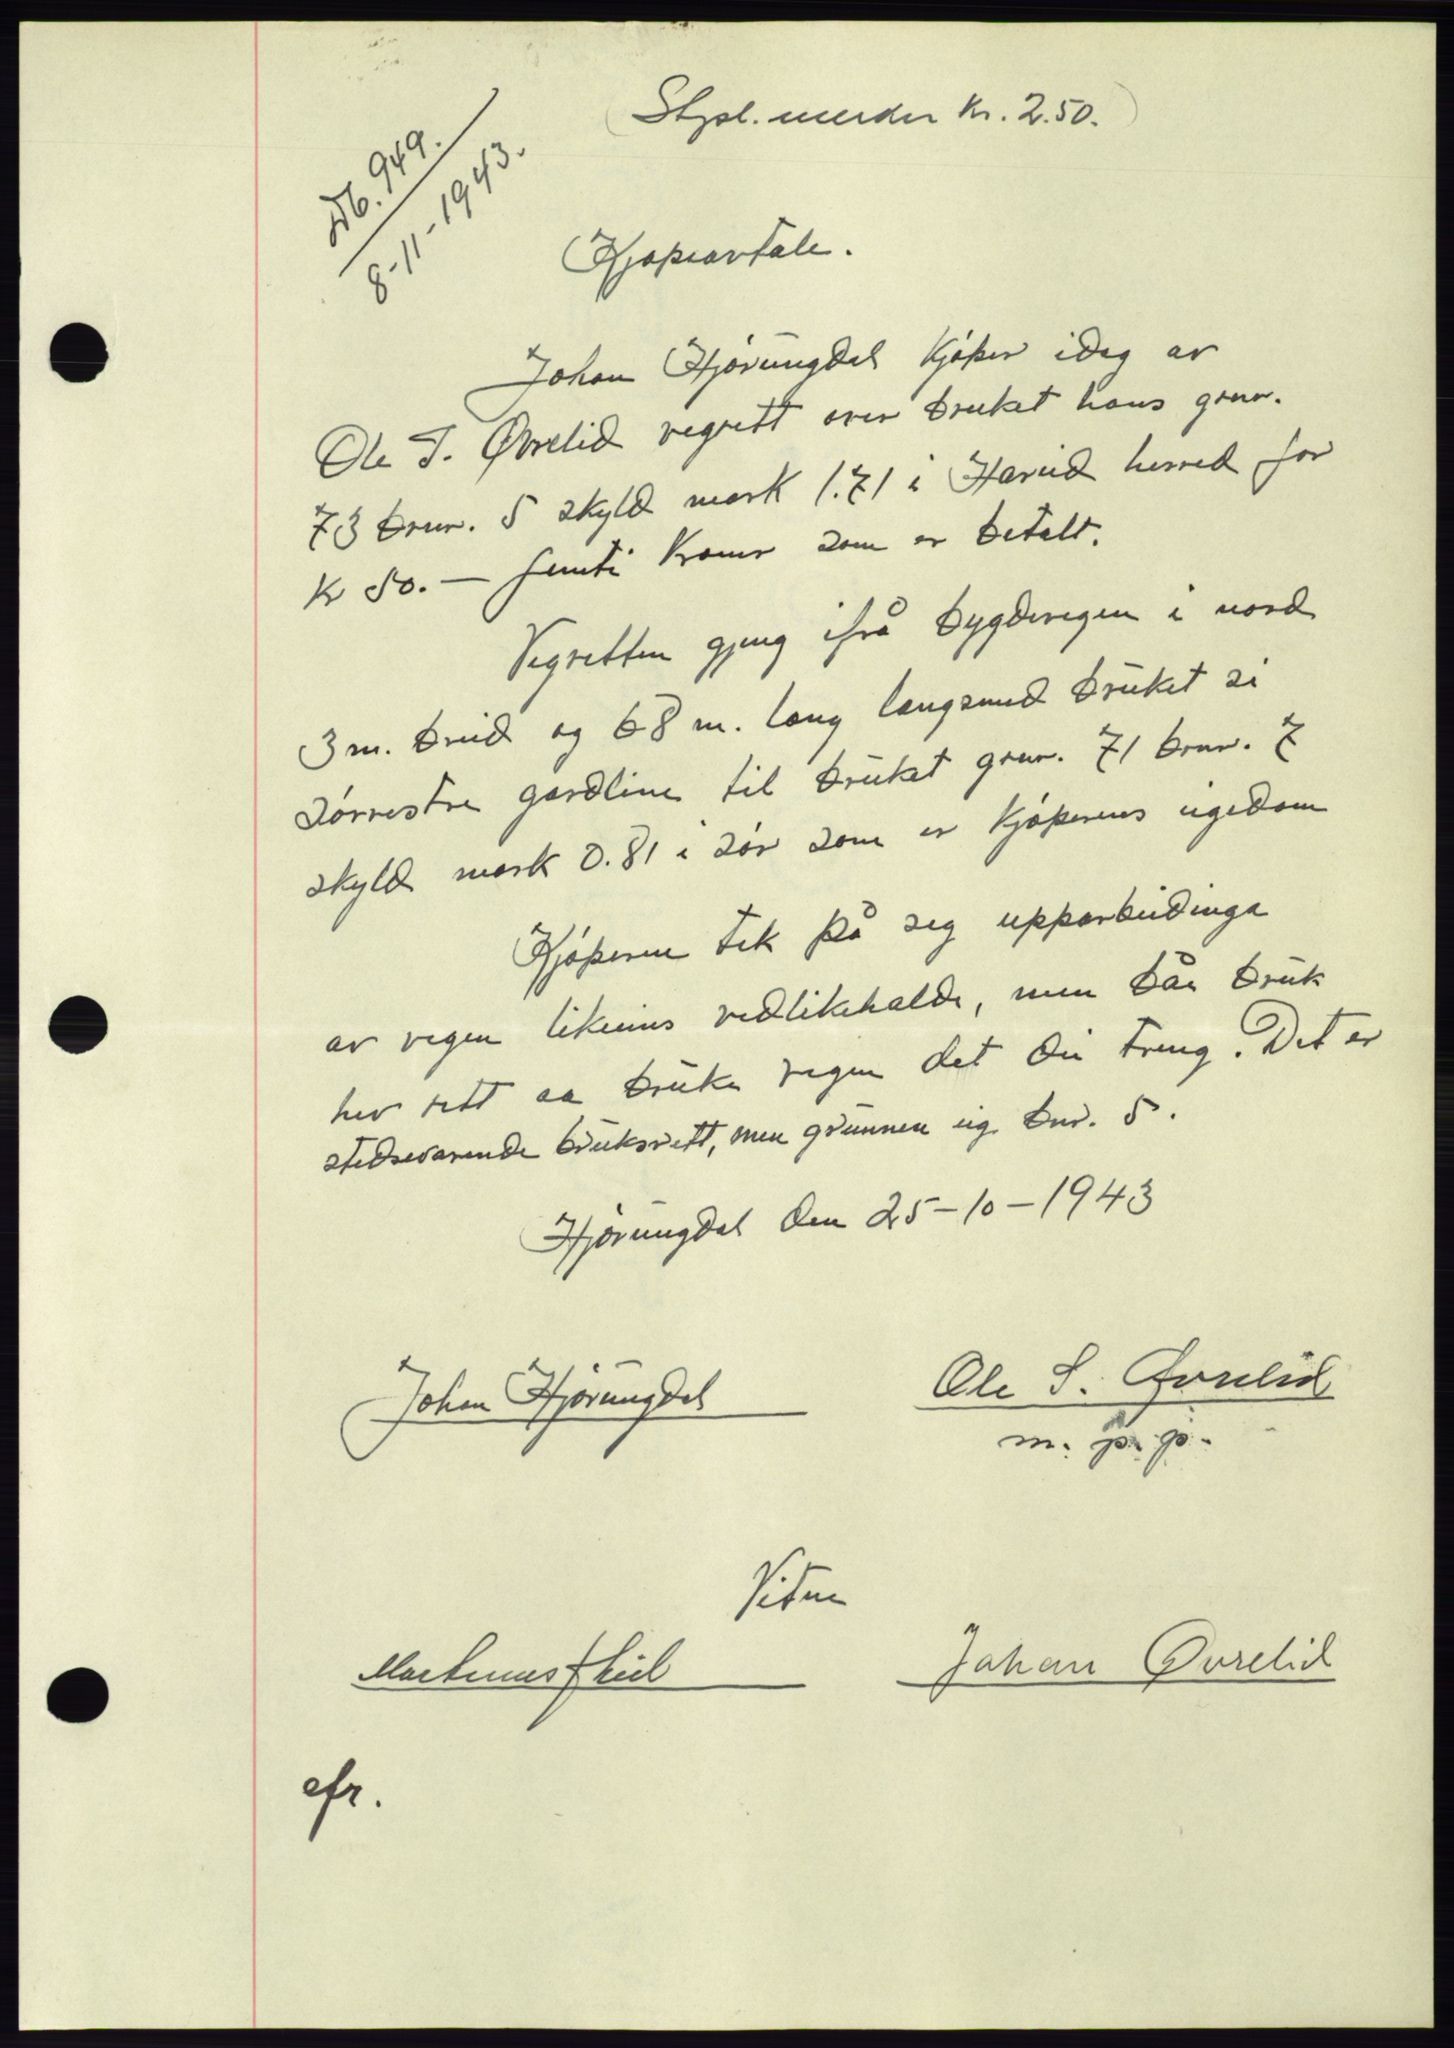 Stpl. merker Kr. 2.50.
Db. 949.
8-11-1943.
Kjøpeavtale.
Johan Hjørungdal kjøper idag av
Ole T. Øvrelid vegrett over bruket hans gnr.
73 brnr. 5 skyld mark 1.71 i Hareid herred for
kr 50.— femti kroner som er betalt.
Vegretten gjeng ifrå bygdevegen i nord
3 m. breid og 68 m. lang langsmed brüket si
sørvestre gardline til brüket gnr. 71 brnr. 7
skyld mark 0.81 i sør som er kjøperens eigedom
Kjøperen tek på seg upparbeidinga
av vegen likeeins vedlikehalde, men båe brük
hev rett aa brüke vegen det dei treng. Det er
stedsevarende brüksrett, men grünnen eig bnr. 5.
Hjørungdal den 25-10-1943
Johan Hjørüngdal
Ole S. Øvrelid
m. p. p.
Vitne
Johan Øvrelid
efr.